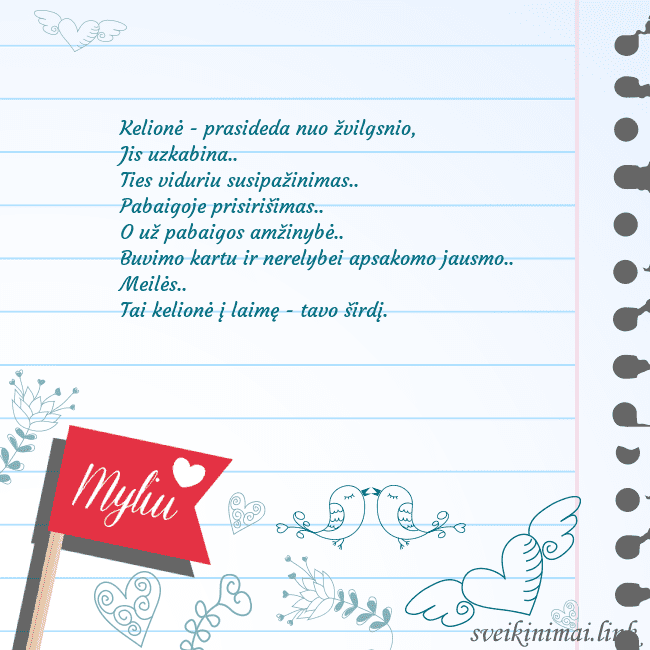 Kelionė - prasideda nuo žvilgsnio,
Jis uzkabina..
Ties viduriu susipažinimas..
Pabaigoje prisirišimas..
O už pabaigos amžinybė..
Buvimo kartu ir nerelybei apsakomo jausmo..
Meilės..
Tai kelionė į laimę - tavo širdį.
Myliu
sveikinimai.link